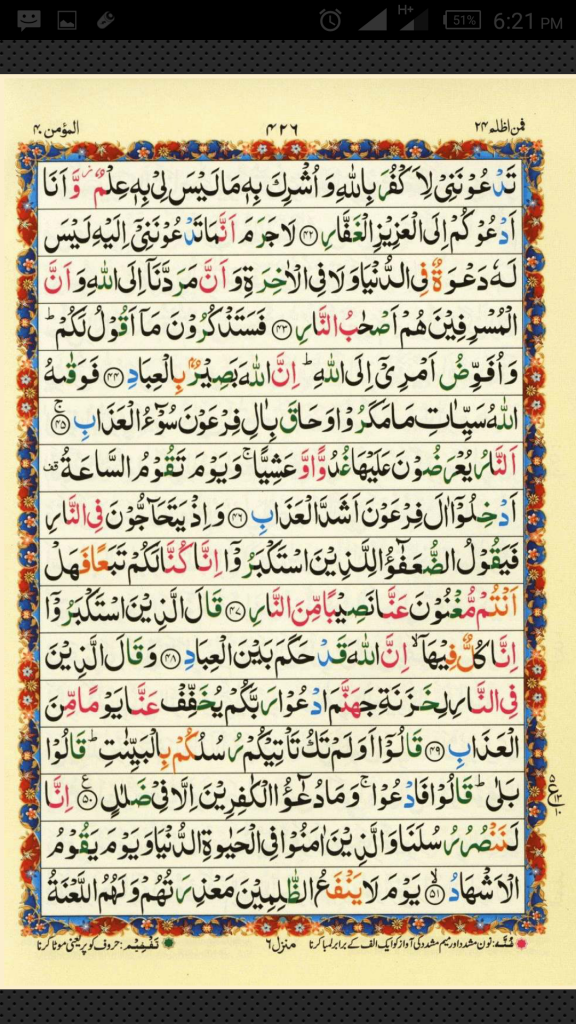 H+ 51% 6:21 PM
فمن اظلم ٢٤ ٤٢٦ المؤمن ٤٠
تَدْعُوْنَنِیْ لِاَكْفُرَ بِاللّٰهِ وَ اُشْرِكَ بِهٖ مَا لَیْسَ لِیْ بِهٖ عِلْمٌ ؗ وَّ اَنَا
اَدْعُوْكُمْ اِلَى الْعَزِیْزِ الْغَفَّارِ ﴿۴۲﴾ لَا جَرَمَ اَنَّمَا تَدْعُوْنَنِیْۤ اِلَیْهِ لَیْسَ
لَهٗ دَعْوَةٌ فِی الدُّنْیَا وَ لَا فِی الْاٰخِرَةِ وَ اَنَّ مَرَدَّنَاۤ اِلَى اللّٰهِ وَ اَنَّ
الْمُسْرِفِیْنَ هُمْ اَصْحٰبُ النَّارِ ﴿۴۳﴾ فَسَتَذْكُرُوْنَ مَاۤ اَقُوْلُ لَكُمْ ؕ
وَ اُفَوِّضُ اَمْرِیْۤ اِلَى اللّٰهِ ؕ اِنَّ اللّٰهَ بَصِیْرٌۢ بِالْعِبَادِ ﴿۴۴﴾ فَوَقٰىهُ
اللّٰهُ سَیِّاٰتِ مَا مَكَرُوْا وَ حَاقَ بِاٰلِ فِرْعَوْنَ سُوْٓءُ الْعَذَابِ ﴿۴۵﴾ۚ
اَلنَّارُ یُعْرَضُوْنَ عَلَیْهَا غُدُوًّا وَّ عَشِیًّا ۚ وَ یَوْمَ تَقُوْمُ السَّاعَةُ ۫
اَدْخِلُوْۤا اٰلَ فِرْعَوْنَ اَشَدَّ الْعَذَابِ ﴿۴۶﴾ وَ اِذْ یَتَحَآجُّوْنَ فِی النَّارِ
فَیَقُوْلُ الضُّعَفٰٓؤُا لِلَّذِیْنَ اسْتَكْبَرُوْۤا اِنَّا كُنَّا لَكُمْ تَبَعًا فَهَلْ
اَنْتُمْ مُّغْنُوْنَ عَنَّا نَصِیْبًا مِّنَ النَّارِ ﴿۴۷﴾ قَالَ الَّذِیْنَ اسْتَكْبَرُوْۤا
اِنَّا كُلٌّ فِیْهَاۤ ۙ اِنَّ اللّٰهَ قَدْ حَكَمَ بَیْنَ الْعِبَادِ ﴿۴۸﴾ وَ قَالَ الَّذِیْنَ
فِی النَّارِ لِخَزَنَةِ جَهَنَّمَ ادْعُوْا رَبَّكُمْ یُخَفِّفْ عَنَّا یَوْمًا مِّنَ
الْعَذَابِ ﴿۴۹﴾ قَالُوْۤا اَوَ لَمْ تَكُ تَاْتِیْكُمْ رُسُلُكُمْ بِالْبَیِّنٰتِ ؕ قَالُوْا
بَلٰى ؕ قَالُوْا فَادْعُوْا ۚ وَ مَا دُعٰٓؤُا الْكٰفِرِیْنَ اِلَّا فِیْ ضَلٰلٍ ﴿۵۰﴾ اِنَّا
لَنَنْصُرُ رُسُلَنَا وَ الَّذِیْنَ اٰمَنُوْا فِی الْحَیٰوةِ الدُّنْیَا وَ یَوْمَ یَقُوْمُ
الْاَشْهَادُ ﴿۵۱﴾ۙ یَوْمَ لَا یَنْفَعُ الظّٰلِمِیْنَ مَعْذِرَتُهُمْ وَ لَهُمُ اللَّعْنَةُ
غُنَّہ: نون مشدد اور میم مشدد کی آواز کو ایک الف کے برابر لمبا کرنا منزل ٦ تَفْخِیْم: حروف کو پُر یعنی موٹا کرنا